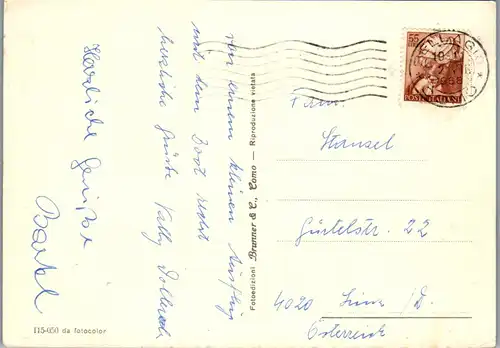 von einem kleinen Ausflug
mit dem Boot recht
herzliche Grüße
Herzliche Grüße
Bartl
Fotoedizioni Brunner & C., Como — Riproduzione vietata
115-050 da fotocolor
55
POSTE ITALIANE
BELLAGIO
Fam.
Stansel
Gürtelstr. 22
4020 Linz / D.
Österreich